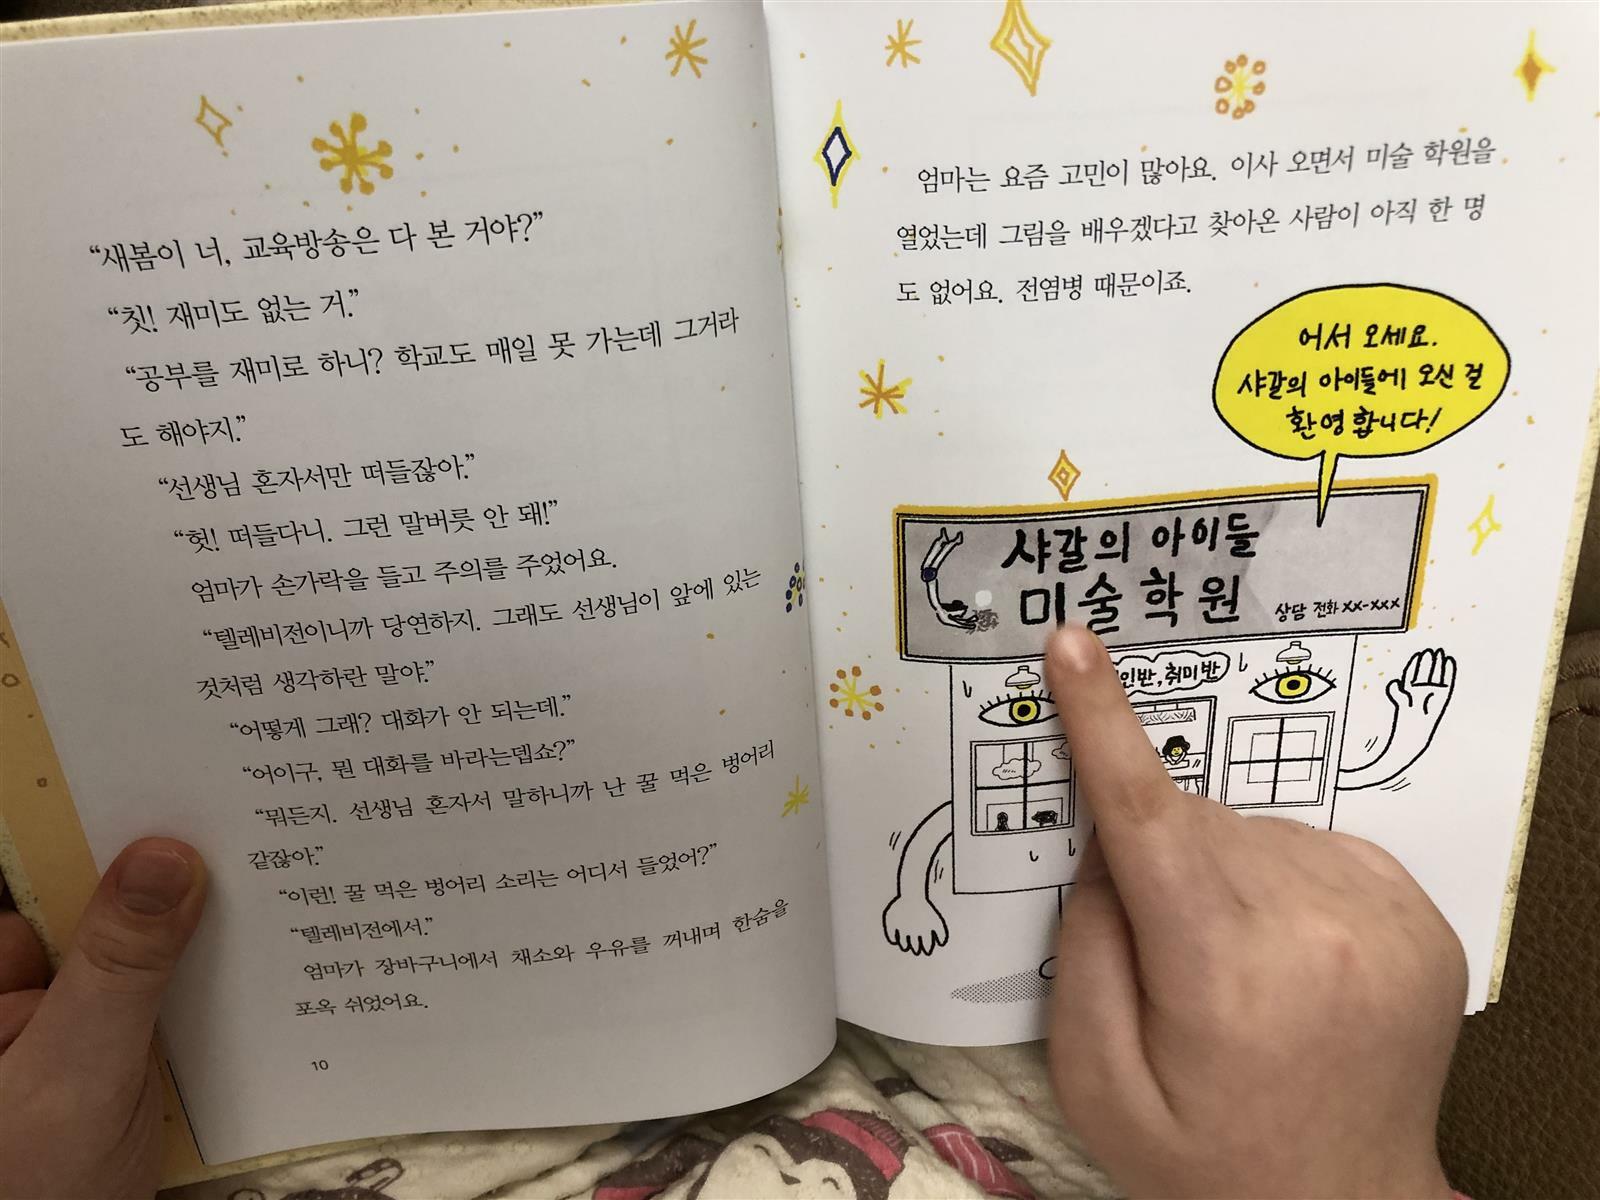 “새봄이 너, 교육방송은 다 본 거야?”
“칫! 재미도 없는 거.”
“공부를 재미로 하니? 학교도 매일 못 가는데 그거라
도 해야지.”
“선생님 혼자서만 떠들잖아.”
“헛! 떠들다니. 그런 말버릇 안 돼!”
엄마가 손가락을 들고 주의를 주었어요.
“텔레비전이니까 당연하지. 그래도 선생님이 앞에 있는
것처럼 생각하란 말야.”
“어떻게 그래? 대화가 안 되는데.”
“어이구, 뭔 대화를 바라는뎁쇼?”
“뭐든지. 선생님 혼자서 말하니까 난 꿀 먹은 벙어리
같잖아.”
“이런! 꿀 먹은 벙어리 소리는 어디서 들었어?”
“텔레비전에서.”
엄마가 장바구니에서 채소와 우유를 꺼내며 한숨을
포옥 쉬었어요.
10
엄마는 요즘 고민이 많아요. 이사 오면서 미술 학원을
열었는데 그림을 배우겠다고 찾아온 사람이 아직 한 명
도 없어요. 전염병 때문이죠.
어서 오세요.
샤갈의 아이들에 오신 걸
환영합니다!
샤갈의 아이들
미술학원
상담 전화 XX-XXX
취미반